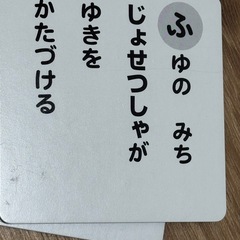 ふゆの みち
じょせつしゃが
ゆきを
かたづける